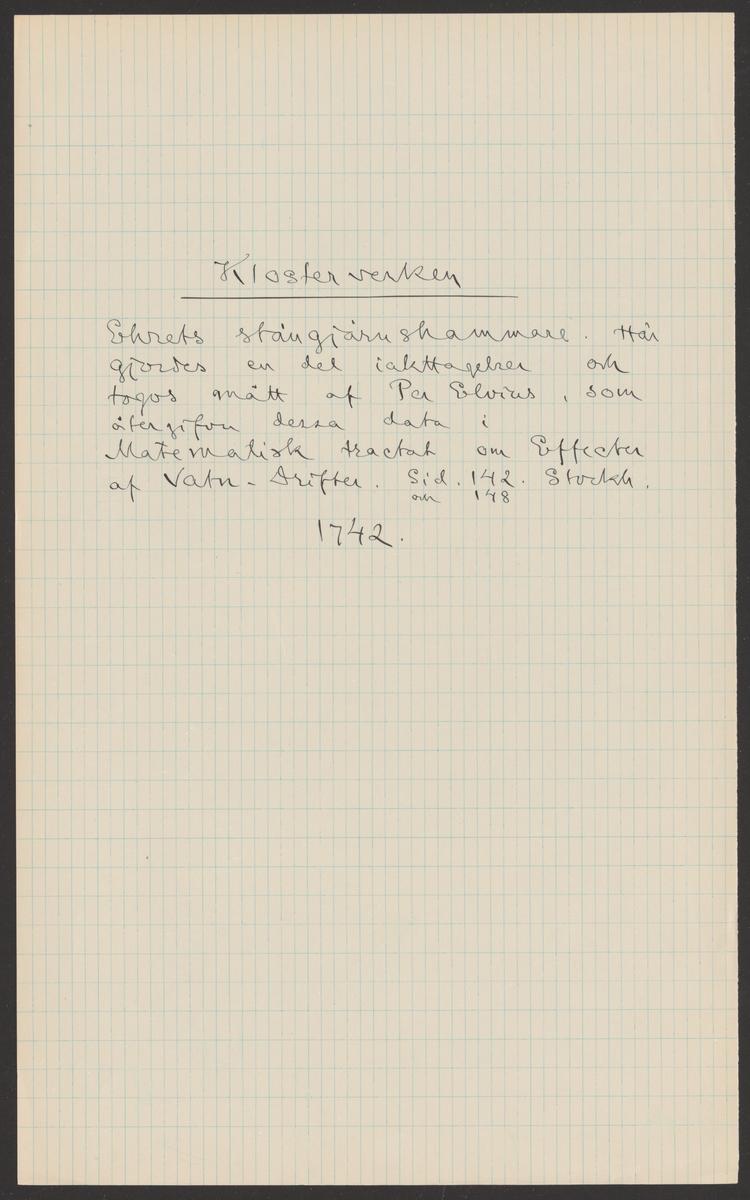 Klosterverken
Ehrets stångjärnshammare. Här
gjordes en del iakttagelser och
togos mått af Per Elvius, som
återgifva dessa data i
Matematisk tractat om Effecter
af Vatn-Drifter. Sid. 142. Stockh.
och 148
1742.